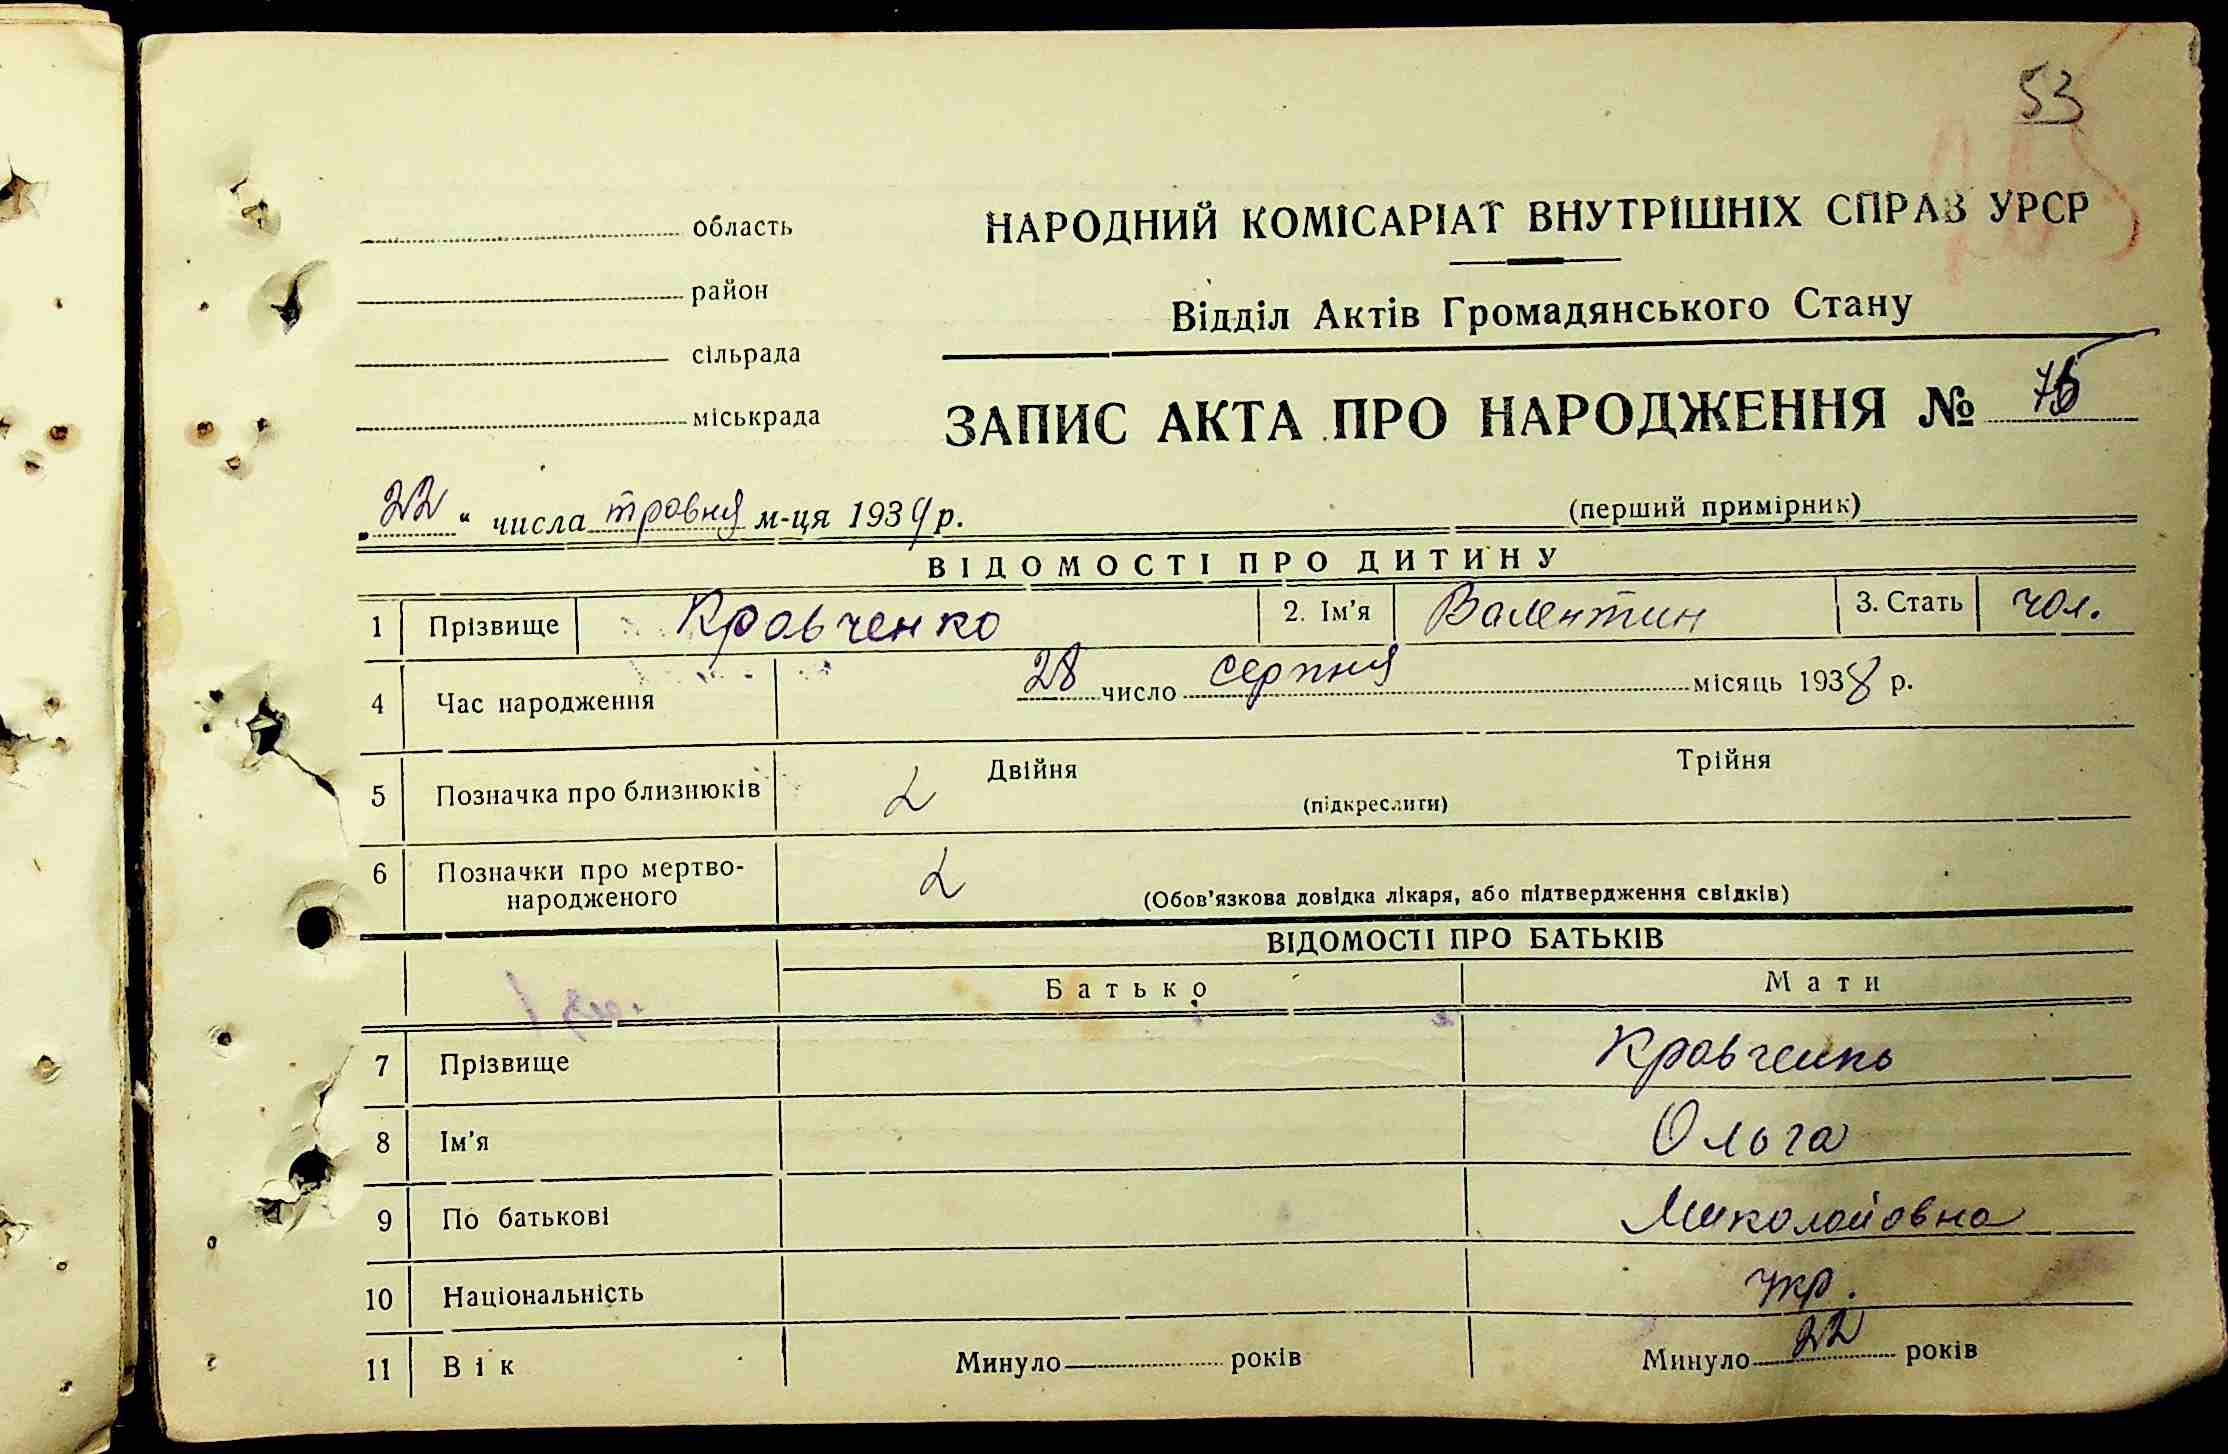 53
область
район
сільрада
міськрада
НАРОДНИЙ КОМІСАРІАТ ВНУТРІШНІХ СПРАВ УРСР
Відділ Актів Громадянського Стану
ЗАПИС АКТА ПРО НАРОДЖЕННЯ №
„22“ числа травня м-ця 1939 р.
(перший примірник)
ВІДОМОСТІ ПРО ДИТИНУ
1 Прізвище Кравченко 2. Ім'я Валентин 3. Стать чол.
4 Час народження 28 число серпня місяць 1938 р.
5 Позначка про близнюків Двійня (підкреслити) Трійня
6 Позначки про мертво-
народженого (Обов'язкова довідка лікаря, або підтвердження свідків)
ВІДОМОСТІ ПРО БАТЬКІВ
Батько Мати
7 Прізвище Кравченко
8 Ім'я Ольга
9 По батькові Миколайовна
10 Національність укр.
11 Вік Минуло років Минуло 22 років